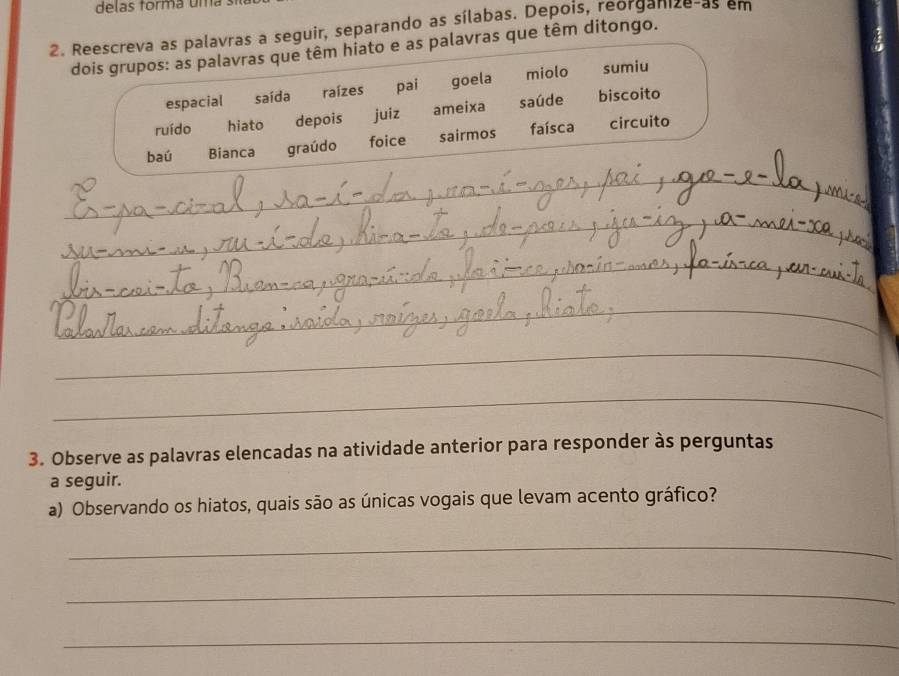 delas forma uma
2. Reescreva as palavras a seguir, separando as sílabas. Depois, reorganize-as em
dois grupos: as palavras que têm hiato e as palavras que têm ditongo.
espacial saída raízes pai goela miolo sumiu
ruído hiato depois juiz ameixa saúde biscoito
baú Bianca graúdo foice sairmos faísca circuito
Es-pa-ci-al, sa-í-da, ra-í-zes, pai, go-e-la, mi-o-
su-mi-u, ru-í-do, hi-a-to, de-pois, ju-iz, a-mei-xa,
bis-coi-to, Bian-ca, gra-ú-do, foi-ce, fa-ís-ca, cir-cui-to
Palavras com ditongo: saída, raízes, goela, hiato,
3. Observe as palavras elencadas na atividade anterior para responder às perguntas
a seguir.
a) Observando os hiatos, quais são as únicas vogais que levam acento gráfico?